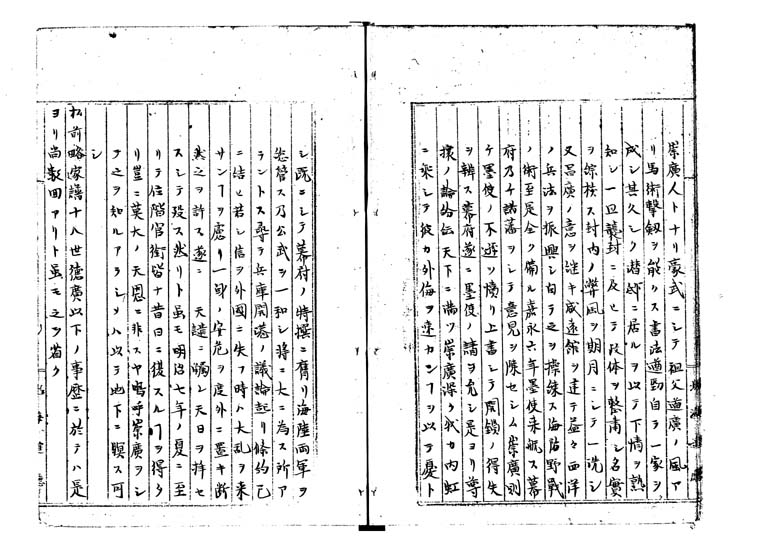 崇廣人ト十リ豪武ニシテ祖父道廣ノ風ア
リ馬術撃剱ヲ能クス書法遒勁自ラ一家ヲ
成シ其久シク潜邸ニ居ルヲ以テ下情ヲ熟
知シ一旦襲封ニ及ヒテ政体ヲ整肅シ名實
ヲ綜核ス封内ノ弊風ヲ期月ニシテ一洗シ
又昌廣ノ意ヲ継キ威遠館ヲ建テ益々西洋
ノ兵法ヲ振興シ自ラ之ヲ操錬ス海陸野戰
ノ術至是全ク備ル嘉永六年墨使来航ス幕
府乃チ諸藩ヲシテ意見ヲ陳セシム崇廣則
チ墨使ノ不遜ヲ憤リ上書シテ開鎖ノ得失
ヲ辨ス幕府遂ニ墨使ノ請ヲ允シ是ヨリ尊
攘ノ論紛伝天下ニ満ツ崇廣深ク我カ内虹
ニ乗シテ彼カ外侮ヲ逞カンヿヲ以テ憂ト
シ既ニシテ幕府ノ特撰ニ膺リ海陸両軍ヲ
总管ス乃公武ヲ一和シ將ニ大ニ為ス所ア
ラントス尋テ兵庫開港ノ議論起リ條約已
ニ結ヒ若シ信ヲ外國ニ失フ時ハ大乱ヲ来
サンヿヲ慮リ一身ノ安危ヲ度外ニ置キ断
然之ヲ許ス遂ニ 天譴ニ觸レ天日ヲ拝セ
スシテ歿ス然リト虽モ明治七年ノ夏ニ至
リテ位階官銜皆ナ昔日ニ復スルヿヲ得タ
リ豈ニ莫大ノ天恩ニ非スヤ嗚呼崇廣ヲシ
テ之ヲ知ルアラシメハ以テ地下ニ瞑ス可
シ
松前略家譜十八世徳廣以下ノ事歴ニ於テハ是
ヨリ尚数回アリト虽モ之ヲ省ク